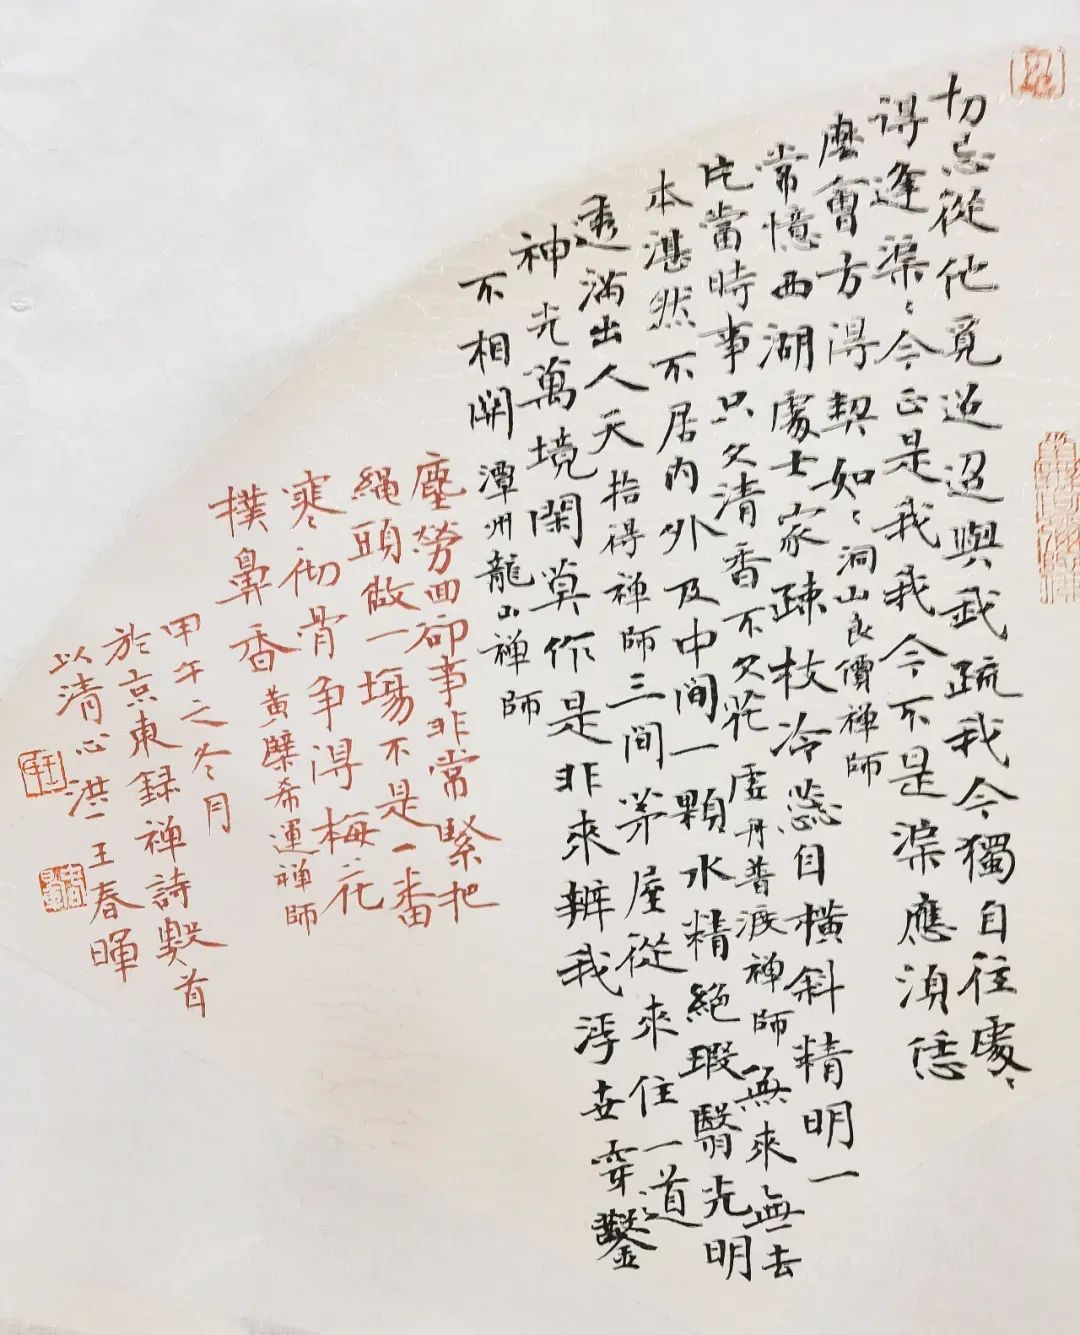 切忌從他覓迢迢與我疏我今獨自往處〻
得逢渠〻今正是我我今不是渠應湏恁
麼會方得契如〻洞山良價禅師
常憶西湖處士家疎枝冷蕊自橫斜精明一
片當時事只欠清香不欠花虛丹普淚禅師無來無去
本湛然不居內外及中間一顆水精絕瑕翳光明
透滿出人天拾得禅師三間茅屋從來住一道
神光萬境閑莫作是非來辨我浮世穿鑿
不相關潭州龍山禅師
塵勞回卻事非常緊把
繩頭做一場不是一番
寒〻彻骨爭得梅花
撲鼻香黃檗希運禅師
甲午之冬月
於京東録禅詩數首
以清心洪一王春暉